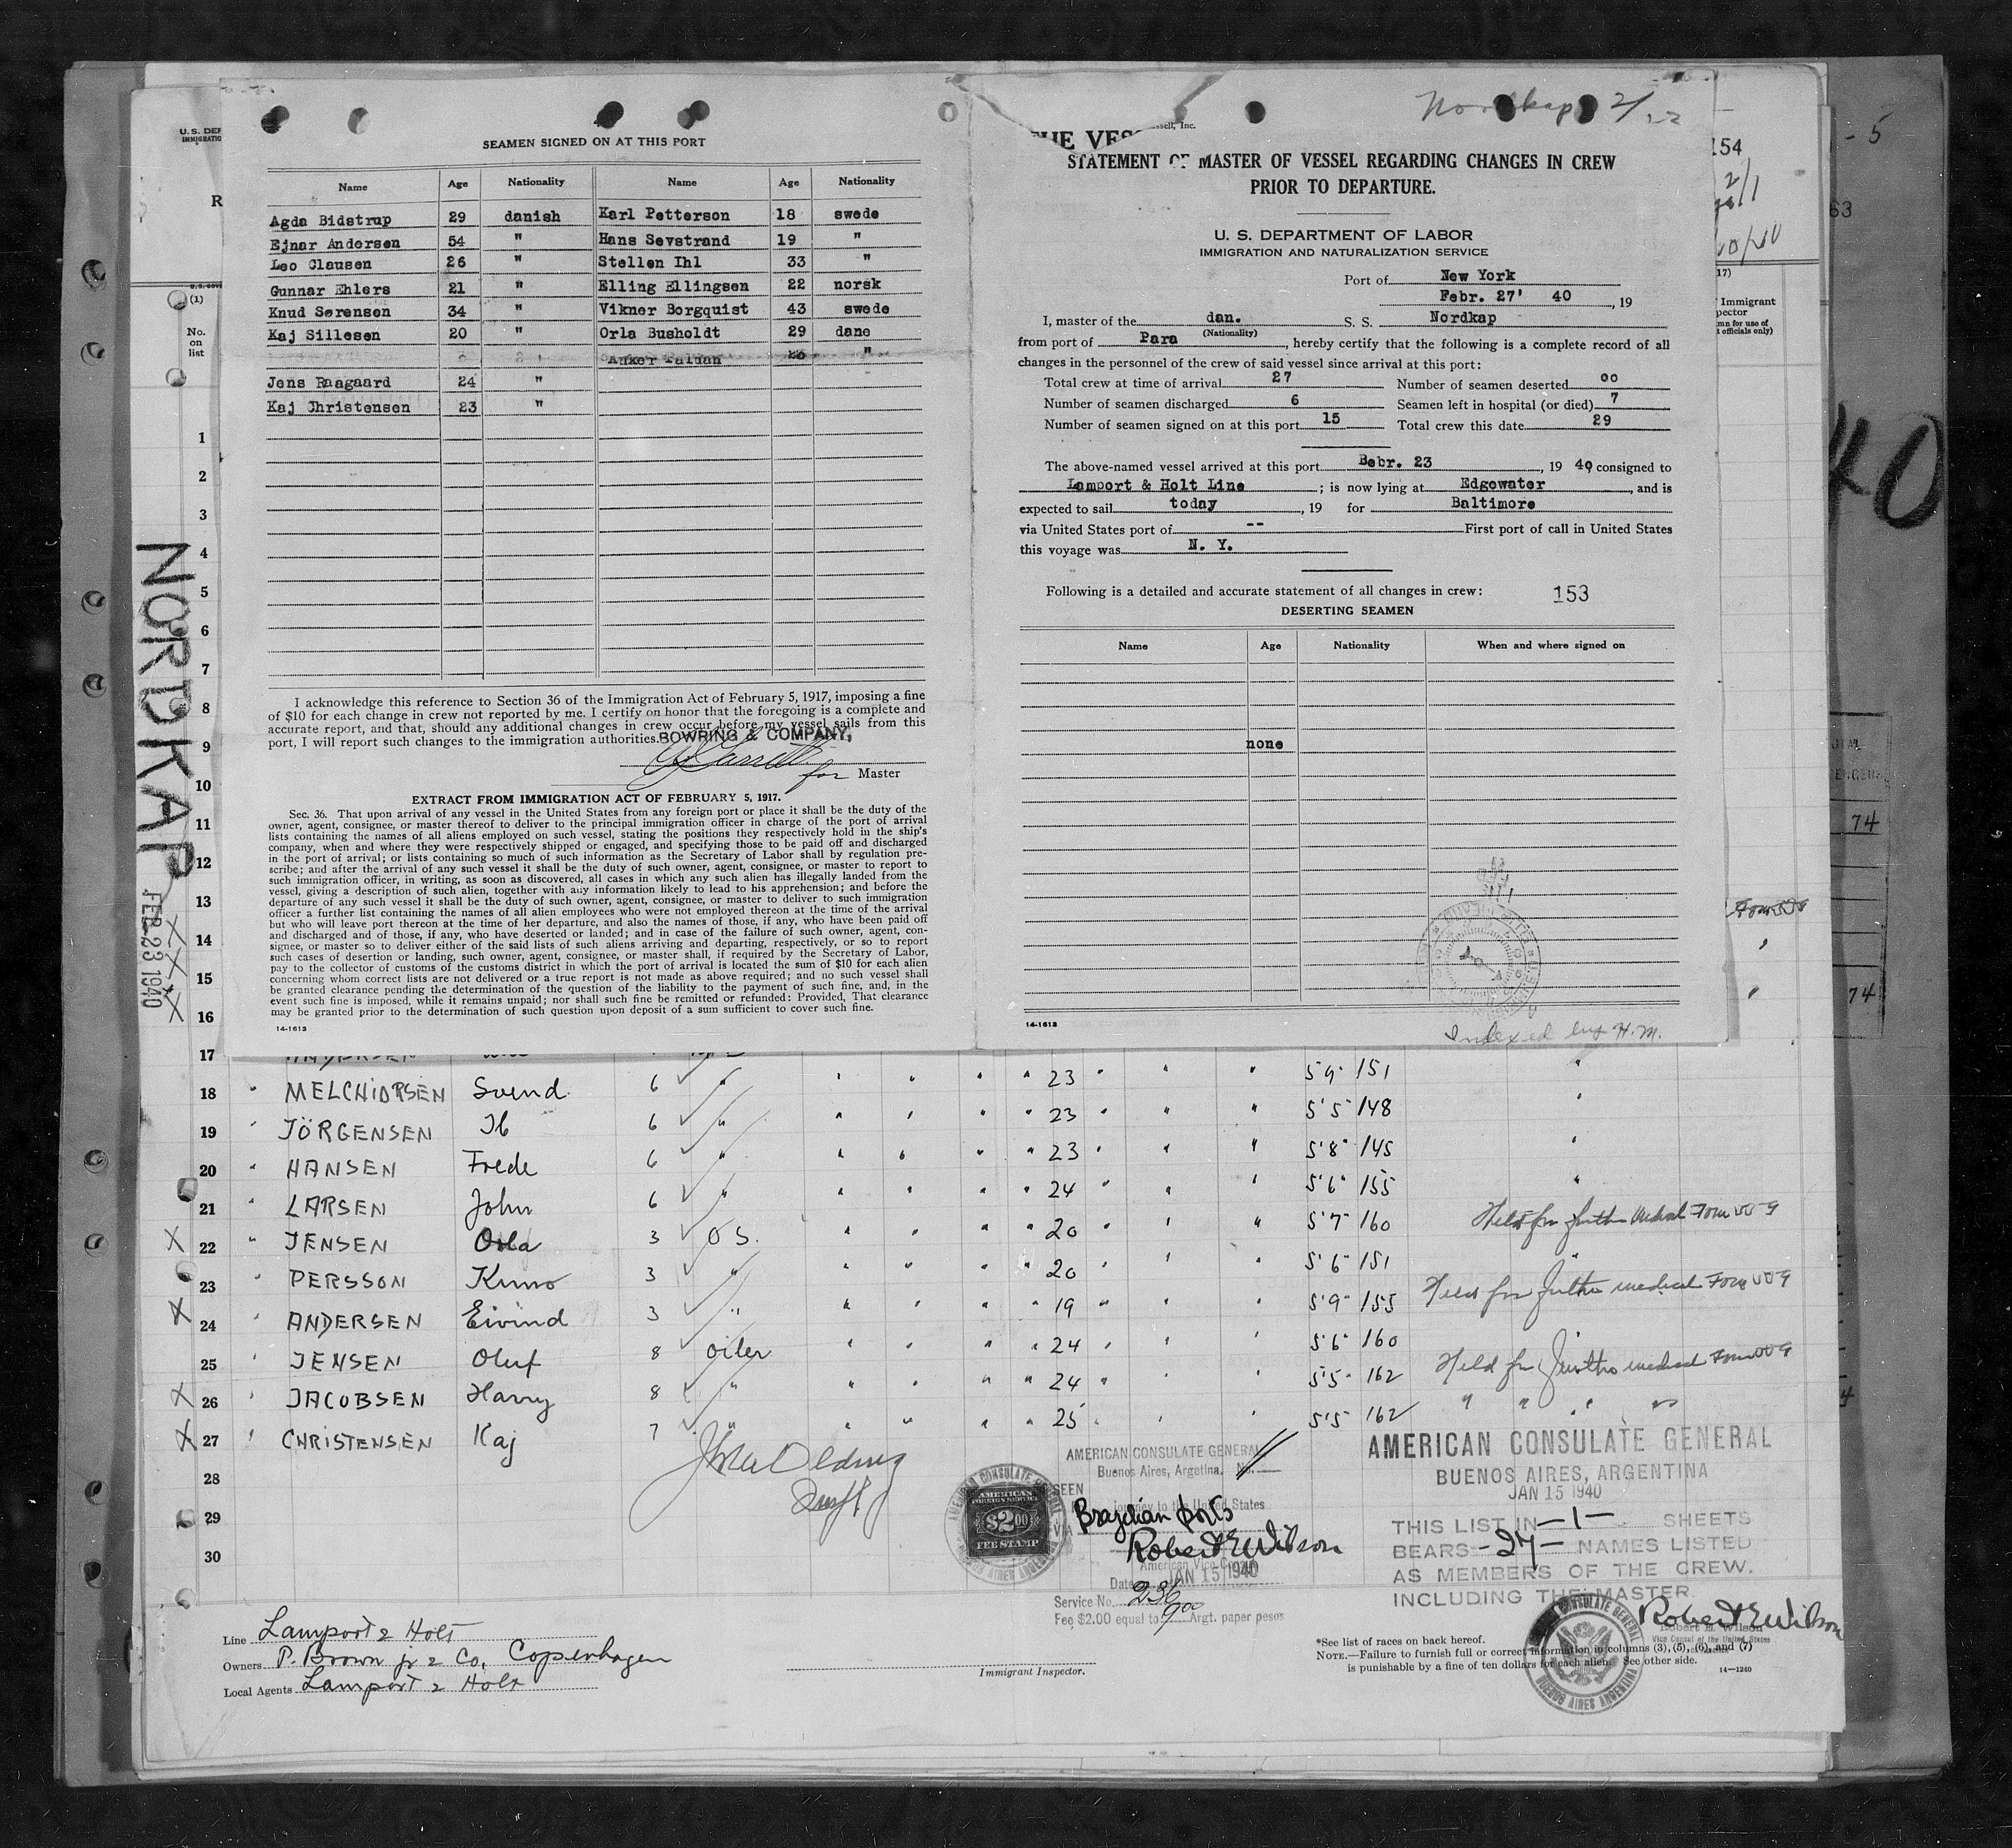 SEAMEN SIGNED ON AT THIS PORT
Name Age Nationality Name Age Nationality
Agda Bidstrup 29 danish Karl Petterson 18 swede
Ejnar Andersen 54 " Hans Sevstrand 19 "
Leo Clausen 26 " Stellen Ihl 33 "
Gunnar Ehlers 21 " Elling Ellingsen 22 norsk
Knud Sørensen 34 " Vikner Borgquist 43 swede
Kaj Sillesen 20 " Orla Busholdt 29 dane
Anker "
Jens Raagaard 24 "
Kaj Christensen 23 "
I acknowledge this reference to Section 36 of the Immigration Act of February 5, 1917, imposing a fine
of $10 for each change in crew not reported by me. I certify on honor that the foregoing is a complete and
accurate report, and that, should any additional changes in crew occur before my vessel sails from this
port, I will report such changes to the immigration authorities. BOWRING & COMPANY,
for Master
EXTRACT FROM IMMIGRATION ACT OF FEBRUARY 5, 1917.
Sec. 36. That upon arrival of any vessel in the United States from any foreign port or place it shall be the duty of the
owner, agent, consignee, or master thereof to deliver to the principal immigration officer in charge of the port of arrival
lists containing the names of all aliens employed on such vessel, stating the positions they respectively hold in the ship's
company, when and where they were respectively shipped or engaged, and specifying those to be paid off and discharged
in the port of arrival; or lists containing so much of such information as the Secretary of Labor shall by regulation pre-
scribe; and after the arrival of any such vessel it shall be the duty of such owner, agent, consignee, or master to report to
such immigration officer, in writing, as soon as discovered, all cases in which any such alien has illegally landed from the
vessel, giving a description of such alien, together with any information likely to lead to his apprehension; and before the
departure of any such vessel it shall be the duty of such owner, agent, consignee, or master to deliver to such immigration
officer a further list containing the names of all alien employees who were not employed thereon at the time of the arrival
but who will leave port thereon at the time of her departure, and also the names of those, if any, who have been paid off
and discharged and of those, if any, who have deserted or landed; and in case of the failure of such owner, agent, con-
signee, or master so to deliver either of the said lists of such aliens arriving and departing, respectively, or so to report
such cases of desertion or landing, such owner, agent, consignee, or master shall, if required by the Secretary of Labor,
pay to the collector of customs of the customs district in which the port of arrival is located the sum of $10 for each alien
concerning whom correct lists are not delivered or a true report is not made as above required; and no such vessel shall
be granted clearance pending the determination of the question of the liability to the payment of such fine, and, in the
event such fine is imposed, while it remains unpaid; nor shall such fine be remitted or refunded: Provided, That clearance
may be granted prior to the determination of such question upon deposit of a sum sufficient to cover such fine.
14-1613
Nordkap 2/
STATEMENT OF MASTER OF VESSEL REGARDING CHANGES IN CREW
PRIOR TO DEPARTURE.
U. S. DEPARTMENT OF LABOR
IMMIGRATION AND NATURALIZATION SERVICE
Port of New York
Febr. 27' 40, 19
I, master of the dan. S. S. Nordkap
(Nationality)
from port of Para, hereby certify that the following is a complete record of all
changes in the personnel of the crew of said vessel since arrival at this port:
Total crew at time of arrival 27 Number of seamen deserted 00
Number of seamen discharged 6 Seamen left in hospital (or died) 7
Number of seamen signed on at this port 15 Total crew this date 29
The above-named vessel arrived at this port Bebr. 23, 19 40 consigned to
Lamport & Holt Line; is now lying at Edgewater, and is
expected to sail today, 19 for Baltimore
via United States port of -- First port of call in United States
this voyage was N. Y.
Following is a detailed and accurate statement of all changes in crew: 153
DESERTING SEAMEN
Name Age Nationality When and where signed on
none
14-1613
Indexed by H.M.
NORDKAP
FEB 23 1940
(1)
No.
on
list
1
2
3
4
5
6
7
8
9
10
11
12
13
14
15
16
17
18 " MELCHIORSEN Svend 6 " 23 5'9" 151
19 " JÖRGENSEN Ib 6 " 23 5'5" 148
20 " HANSEN Frede 6 " 23 5'8" 145
21 " LARSEN John 6 " 24 5'6" 155
22 " JENSEN Orla 3 O S. 20 5'7" 160 Held for further medical Form 509
23 " PERSSON Kuno 3 " 20 5'6" 151 "
24 " ANDERSEN Eivind 3 " 19 5'9" 155 Held for further medical Form 509
25 " JENSEN Oluf 8 oiler 24 5'6" 160 "
26 " JACOBSEN Harry 8 " 24 5'5" 162 Held for further medical Form 509
27 " CHRISTENSEN Kaj 7 " 25 5'5" 162 " " " "
28
29
30
AMERICAN CONSULATE GENERAL
Buenos Aires, Argetina. No.
SEEN
journey to the United States
VIA Brazilian ports
Robert E Wilson
American Vice Consul
Date JAN 15 1940
Service No. 236
Fee $2.00 equal to 9.00 Argt. paper pesos
AMERICAN
FOREIGN SERVICE
$2.00
FEE STAMP
AMERICAN CONSULATE GENERAL
BUENOS AIRES, ARGENTINA
JAN 15 1940
THIS LIST IN -1- SHEETS
BEARS -27- NAMES LISTED
AS MEMBERS OF THE CREW,
INCLUDING THE MASTER.
Robert E Wilson
Robert E. Wilson
Vice Consul of the United States
Line Lamport & Holt
Owners P. Brown jr & Co, Copenhagen
Local Agents Lamport & Holt
Immigrant Inspector.
*See list of races on back hereof.
NOTE.—Failure to furnish full or correct information in columns (3), (5), (6), and (7)
is punishable by a fine of ten dollars for each alien. See other side.
14-1240
154
63
- 5
40
74
74